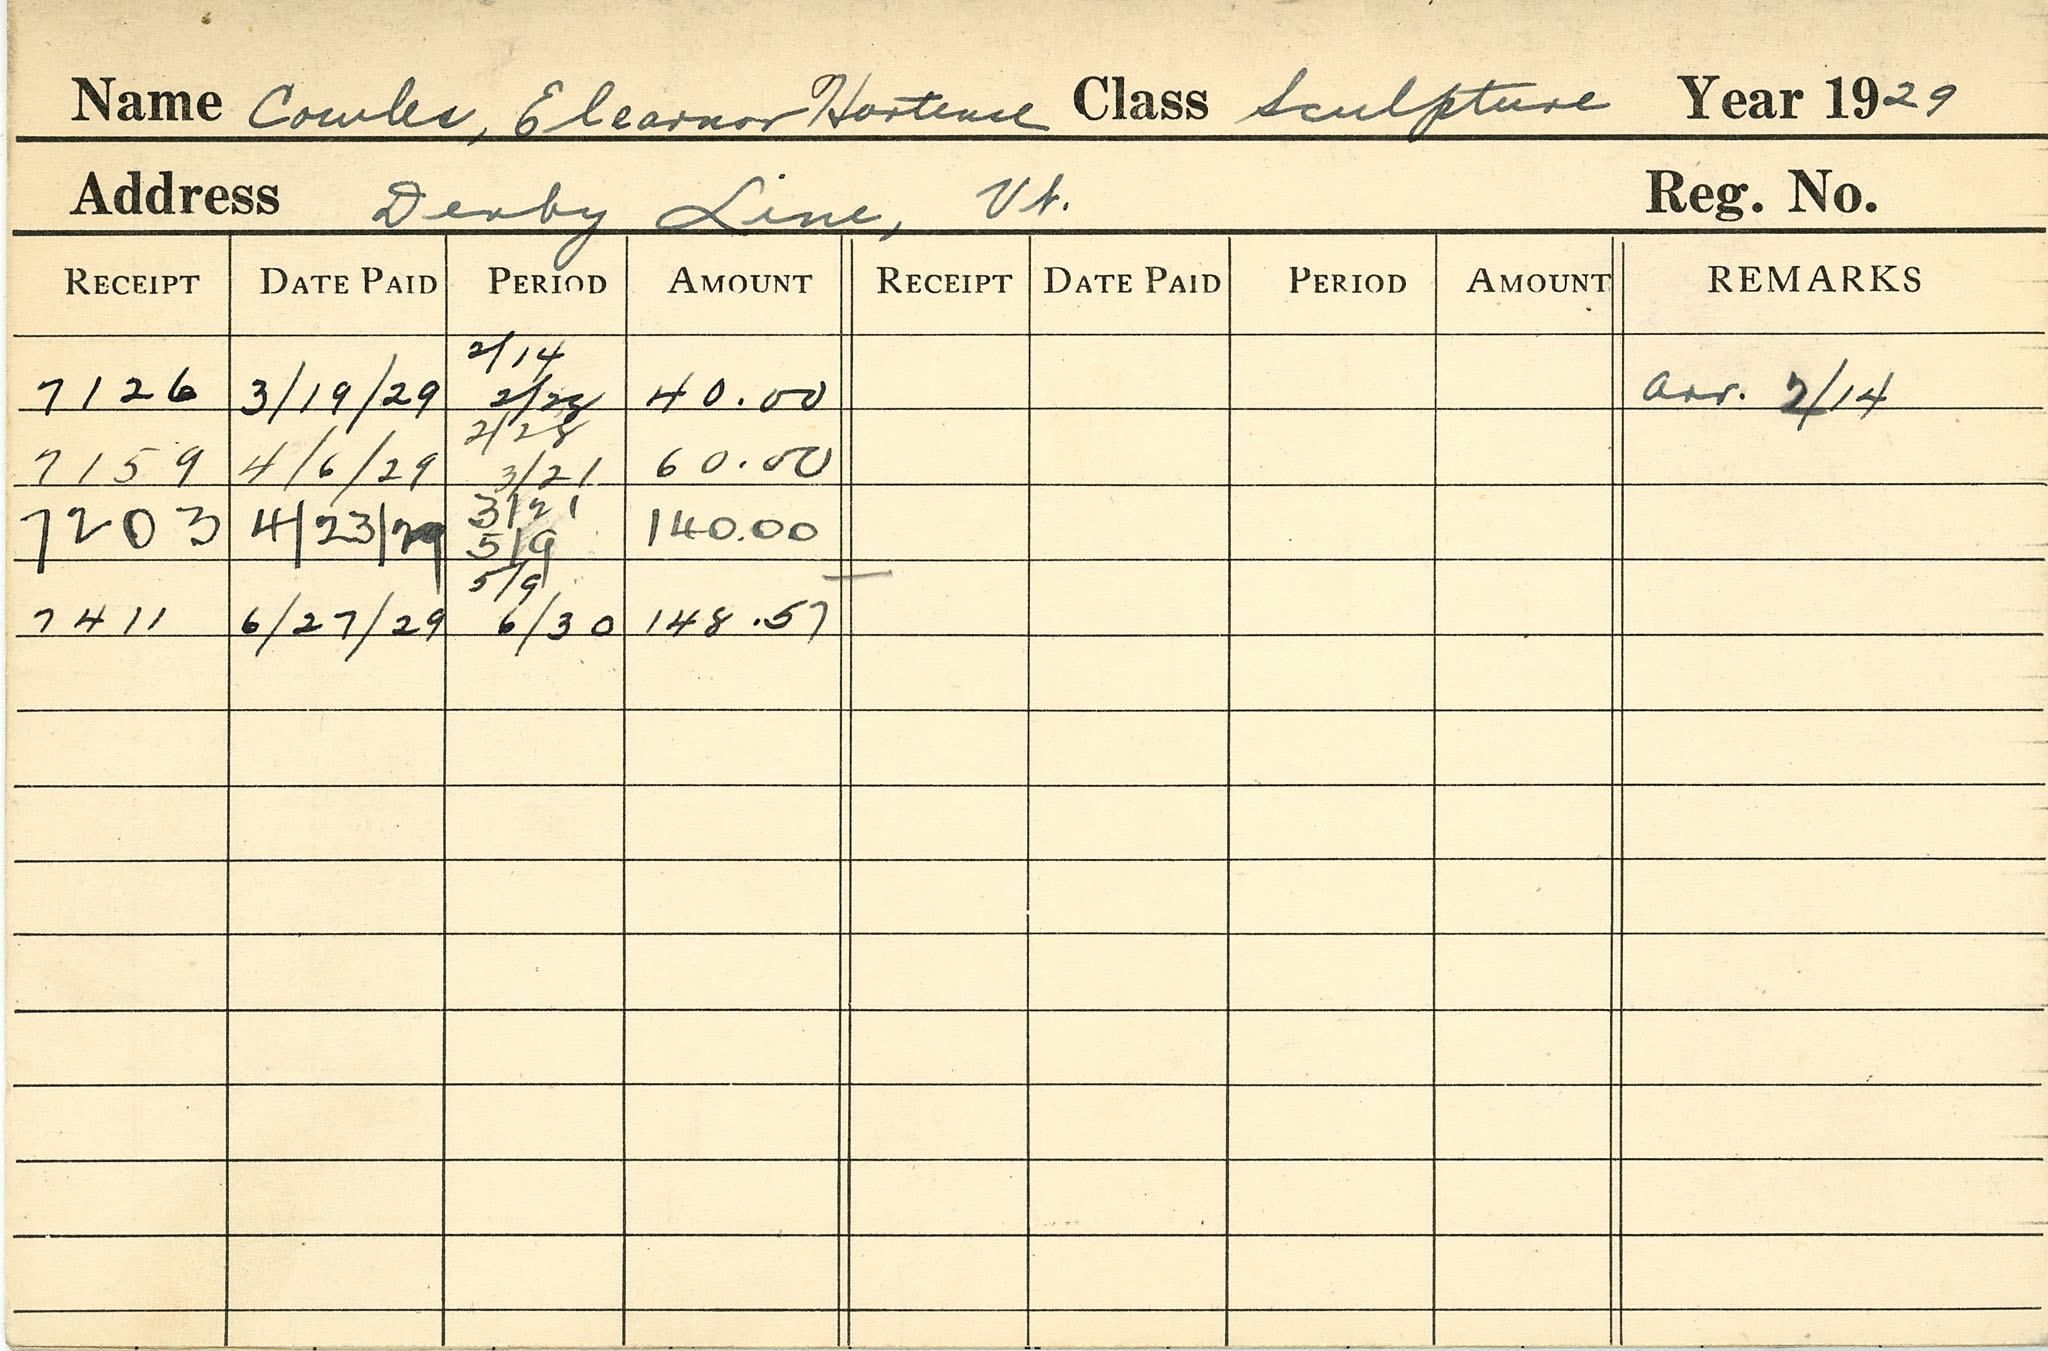 Name Cowles, Elearnor Hortense Class Sculpture Year 1929
Address Derby Line, Vt. Reg. No.
RECEIPT DATE PAID PERIOD AMOUNT RECEIPT DATE PAID PERIOD AMOUNT REMARKS
2/14
7126 3/19/29 2/28 40.00 arr. 2/14
2/28
7159 4/6/29 3/21 60.00
3/21
7203 4/23/29 5/9 140.00
5/9
7411 6/27/29 6/30 148.57